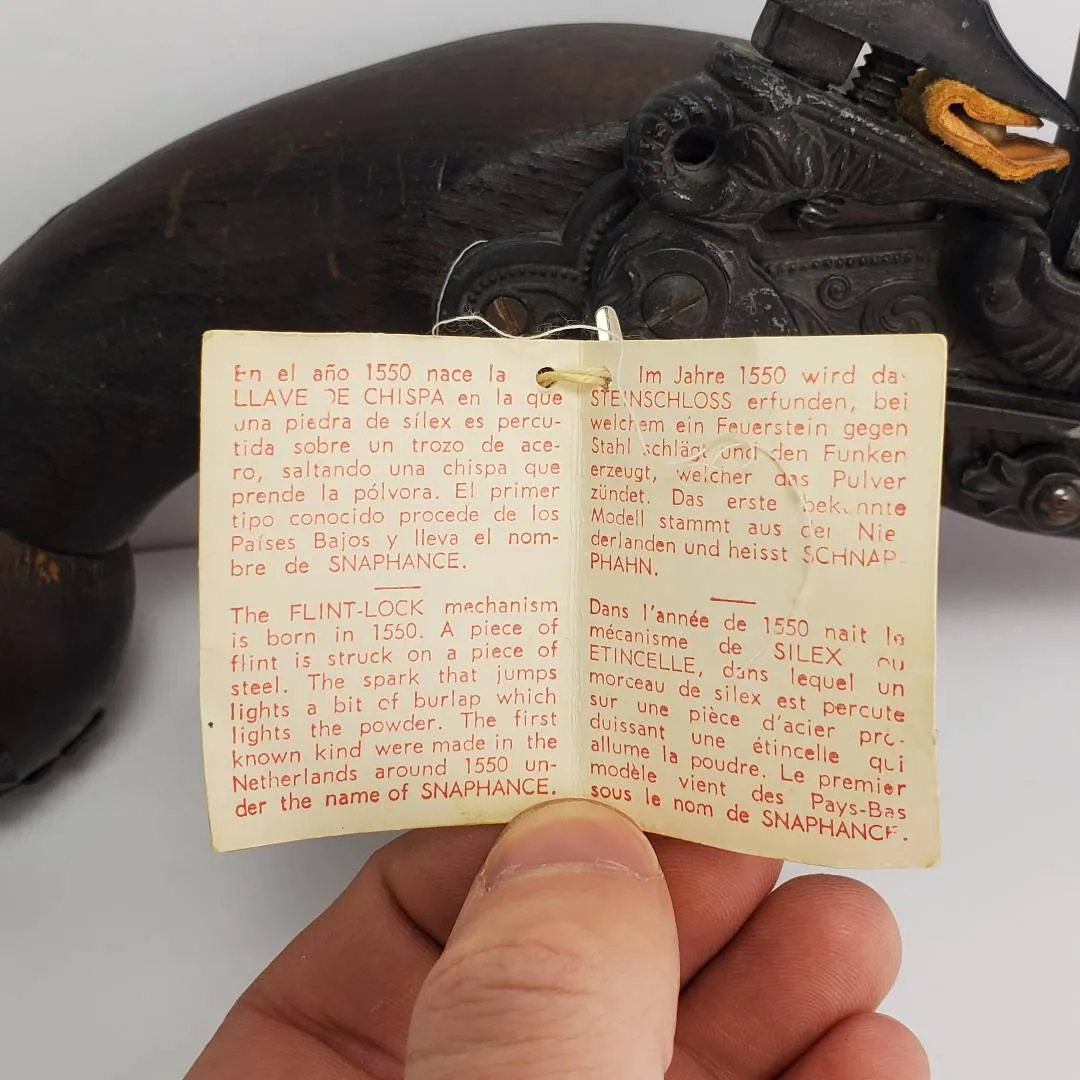 En el año 1550 nace la
LLAVE DE CHISPA en la que
una piedra de sílex es percu-
tida sobre un trozo de ace-
ro, saltando una chispa que
prende la pólvora. El primer
tipo conocido procede de los
Países Bajos y lleva el nom-
bre de SNAPHANCE.
The FLINT-LOCK mechanism
is born in 1550. A piece of
flint is struck on a piece of
steel. The spark that jumps
lights a bit of burlap which
lights the powder. The first
known kind were made in the
Netherlands around 1550 un-
der the name of SNAPHANCE.
Im Jahre 1550 wird das
STEINSCHLOSS erfunden, bei
welchem ein Feuerstein gegen
Stahl schlägt und den Funken
erzeugt, welcher das Pulver
zündet. Das erste bekannte
Modell stammt aus der Nie
derlanden und heisst SCHNAP-
PHAHN.
Dans l'année de 1550 nait le
mécanisme de SILEX ou
ETINCELLE, dans lequel un
morceau de silex est percute
sur une pièce d'acier pro-
duissant une étincelle qui
allume la poudre. Le premier
modèle vient des Pays-Bas
sous le nom de SNAPHANCE.